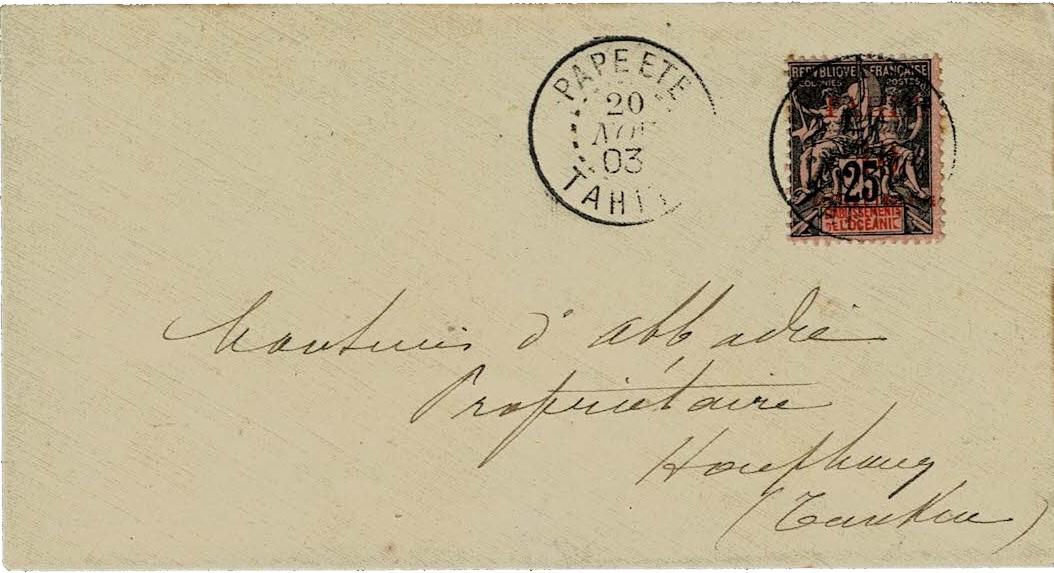 PAPEETE
20
NOV
03
TAHITI
REPUBLIQUE FRANÇAISE
COLONIES POSTES
25
ETABLISSEMENTS
DE L'OCÉANIE
Monsieur d'Abbadie
Propriétaire
Haiphong
(Tonkin)